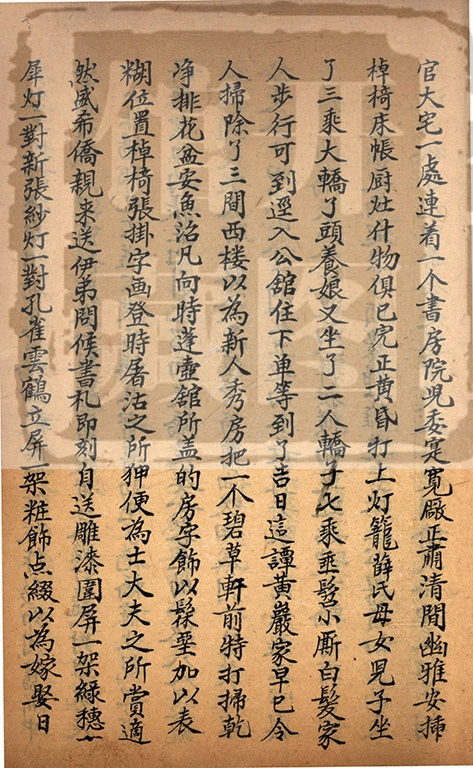 官大宅一處連着一个書房院児委寔寬厰正肅清閒幽雅安揷
棹椅床帳厨灶什物俱已完正黄昏打上灯籠薛氏母女児子坐
了三乘大轎了頭養娘又坐了二人轎子七乘垂髫小厮白髮家
人步行可到逕入公舘住下单等到了吉日這譚黄巖家早已令
人掃除了三間西楼以為新人秀房把一个碧草軒前特打掃乾
净排花盆安魚沼凡向時蓬壺舘所盖的房字飾以髹堊加以表
糊位置棹椅張掛字画登時屠沽之所狎便為士大夫之所賞適
然盛希僑親来送伊弟問候書札即刻自送雕漆圍屏一架緑穗
犀灯一對新張紗灯一對孔雀雲鶴立屏一架粧飾点綴以為嫁娶日